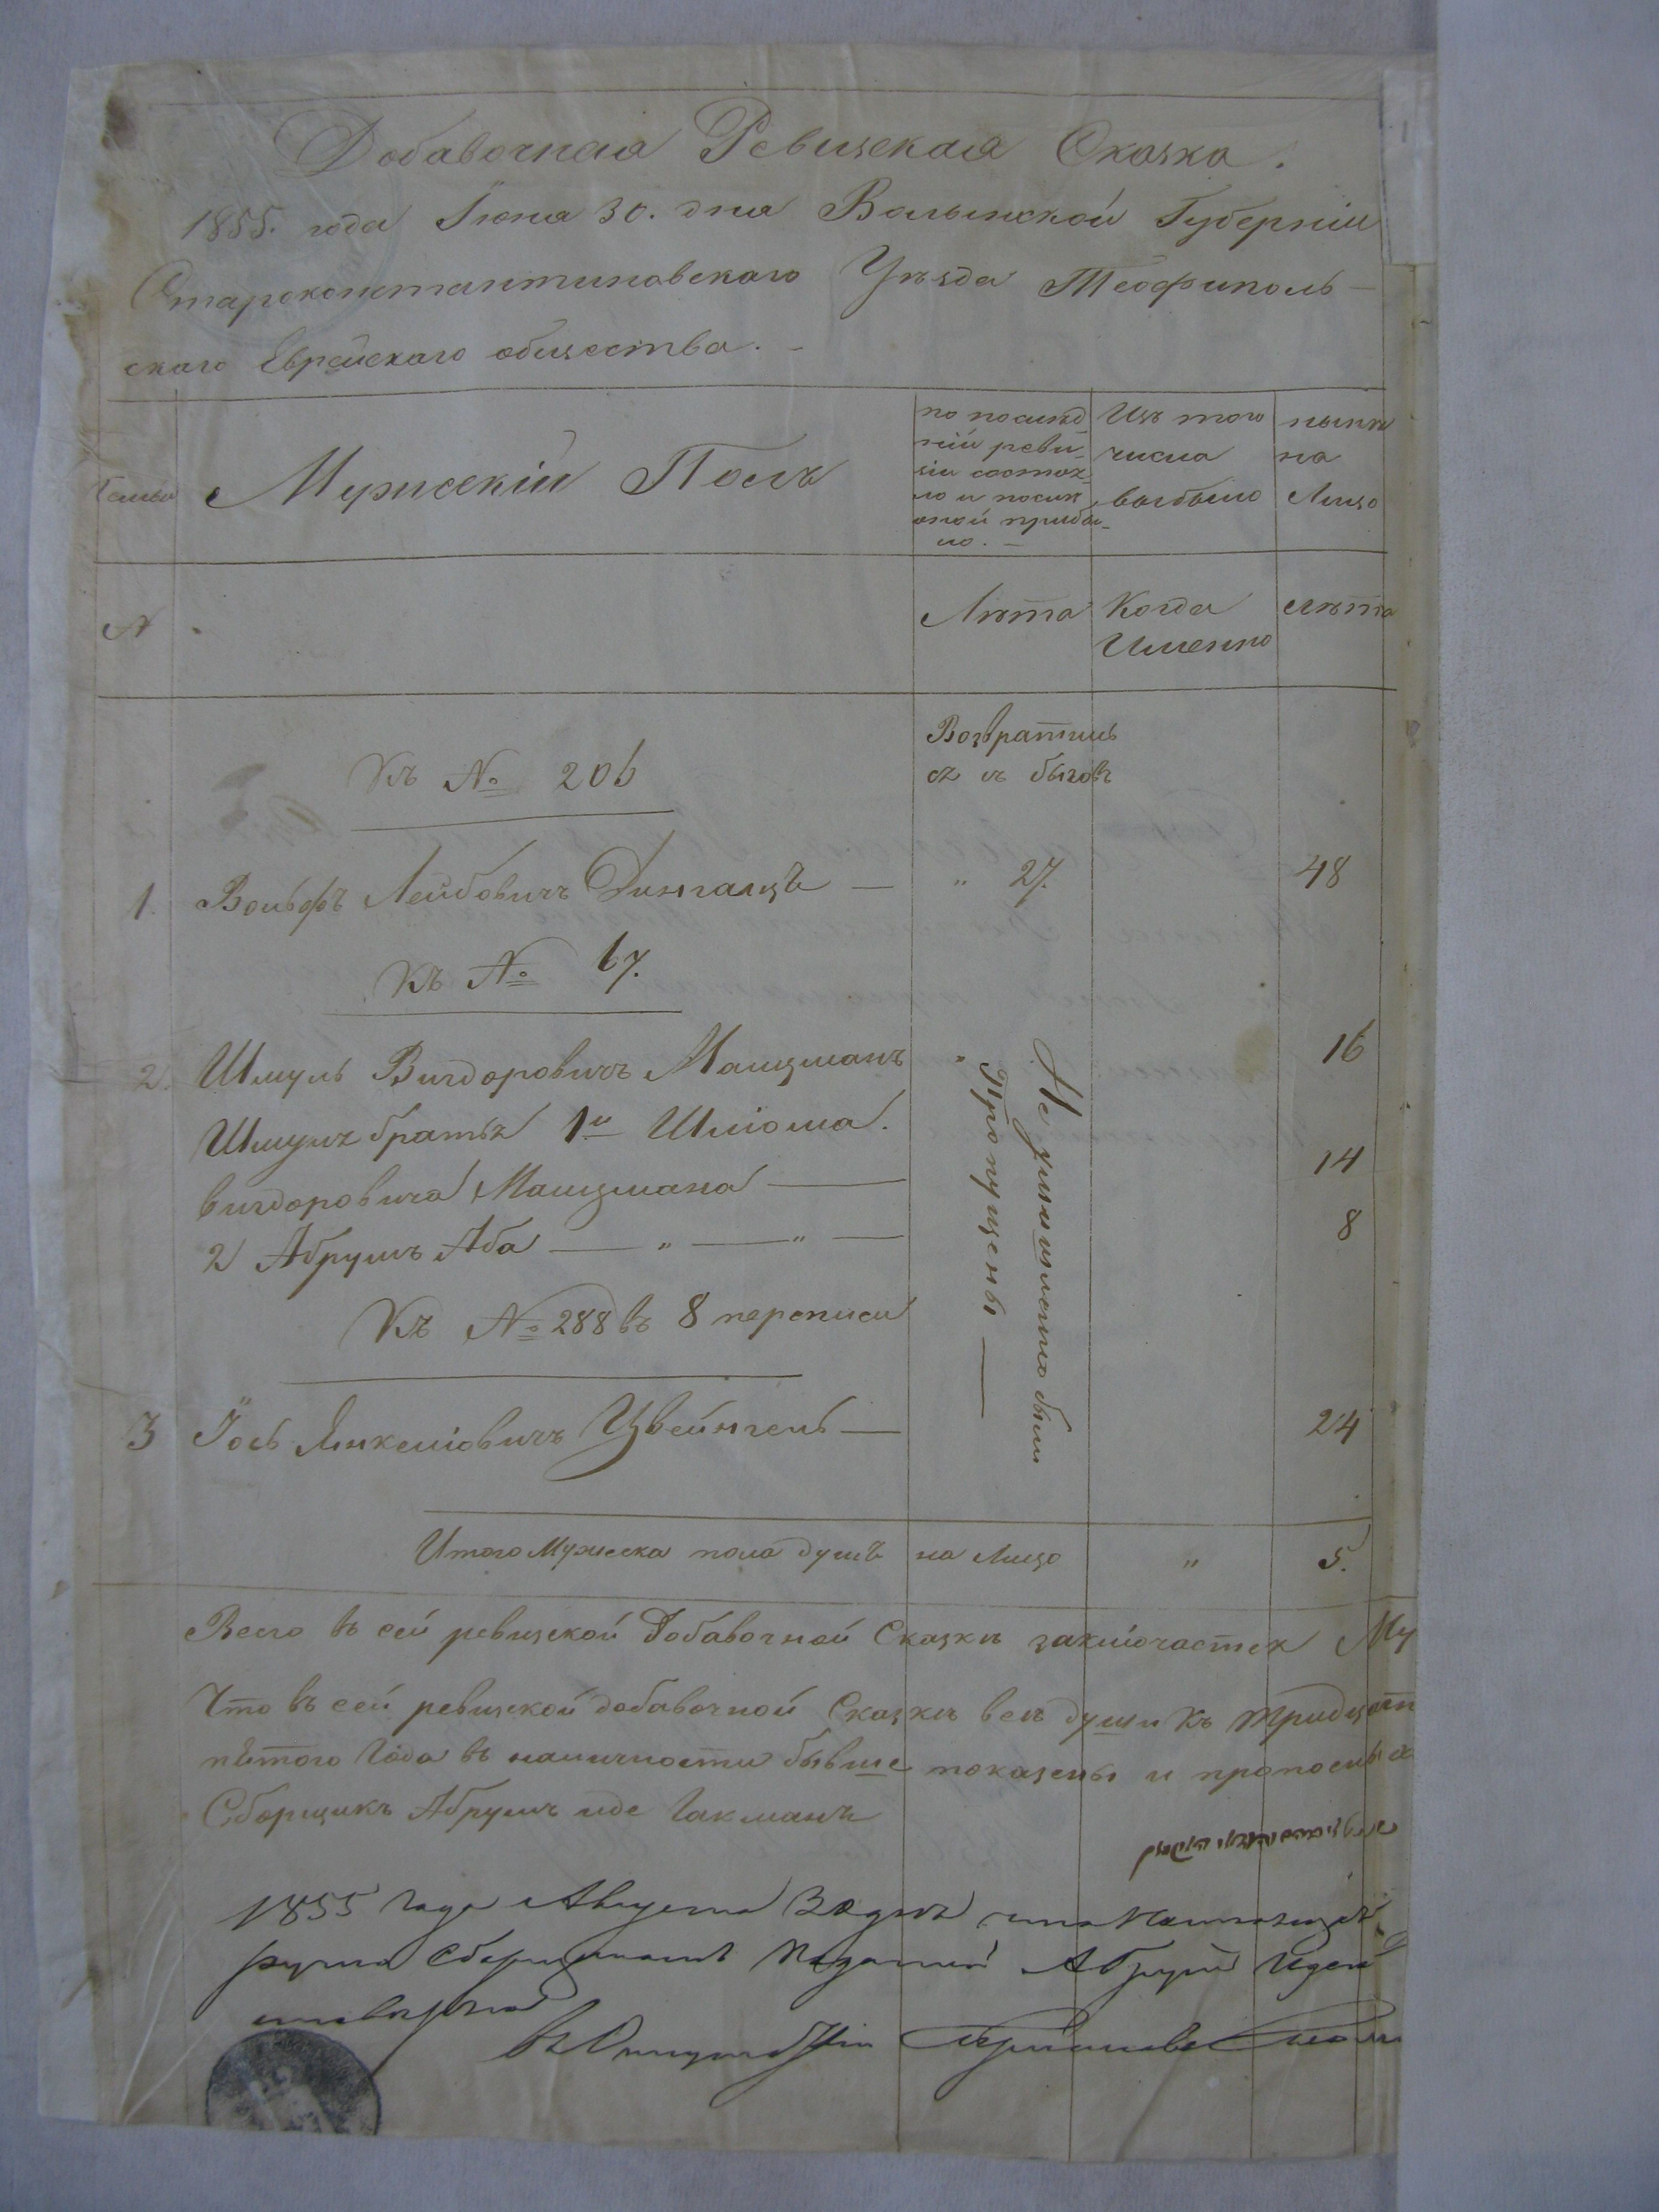 Добавочная Ревизская Сказка.
1855. года Іюня 30. дня Волынской Губерніи
Староконстантиновскаго Уѣзда Теофиполь-
скаго Еврейскаго общества. -
Семьи
Мужескій Полъ
по послѣд
ній реви-
зіи состоя-
ло и послѣ
оной прибы-
ло. -
Изъ того
числа
выбыло
нынѣ
на
Лицо
№
Лѣта
Когда
Именно
лѣта
Къ № 206
Возвратилъ
ся съ бѣговъ
1. Вольфъ Лейбовичъ — " 27. 48
Къ № 67.
2. Шмуль Вигдоровичъ 16
Шмуля братья 1й Шліома.
Вигдоровича 14
2 Абрумъ Аба — " — " — 8
" Пропущены —
были
Къ № 288 въ 8 переписи
3 Іось Янкеліовичъ Цвейнгель — 24
Итого Мужеска пола душъ на лицо " 5.
Всего въ сей ревизской Добавочной Сказкѣ заключается Му
Что въ сей ревизской добавочной Сказкѣ всѣ души къ тридцат
пятого Года въ наличности бывше показаны и
Сборщикъ Абрумъ Гакманъ
1855 Года Августа 30 дня что
рука Сборщика Податей Абрума